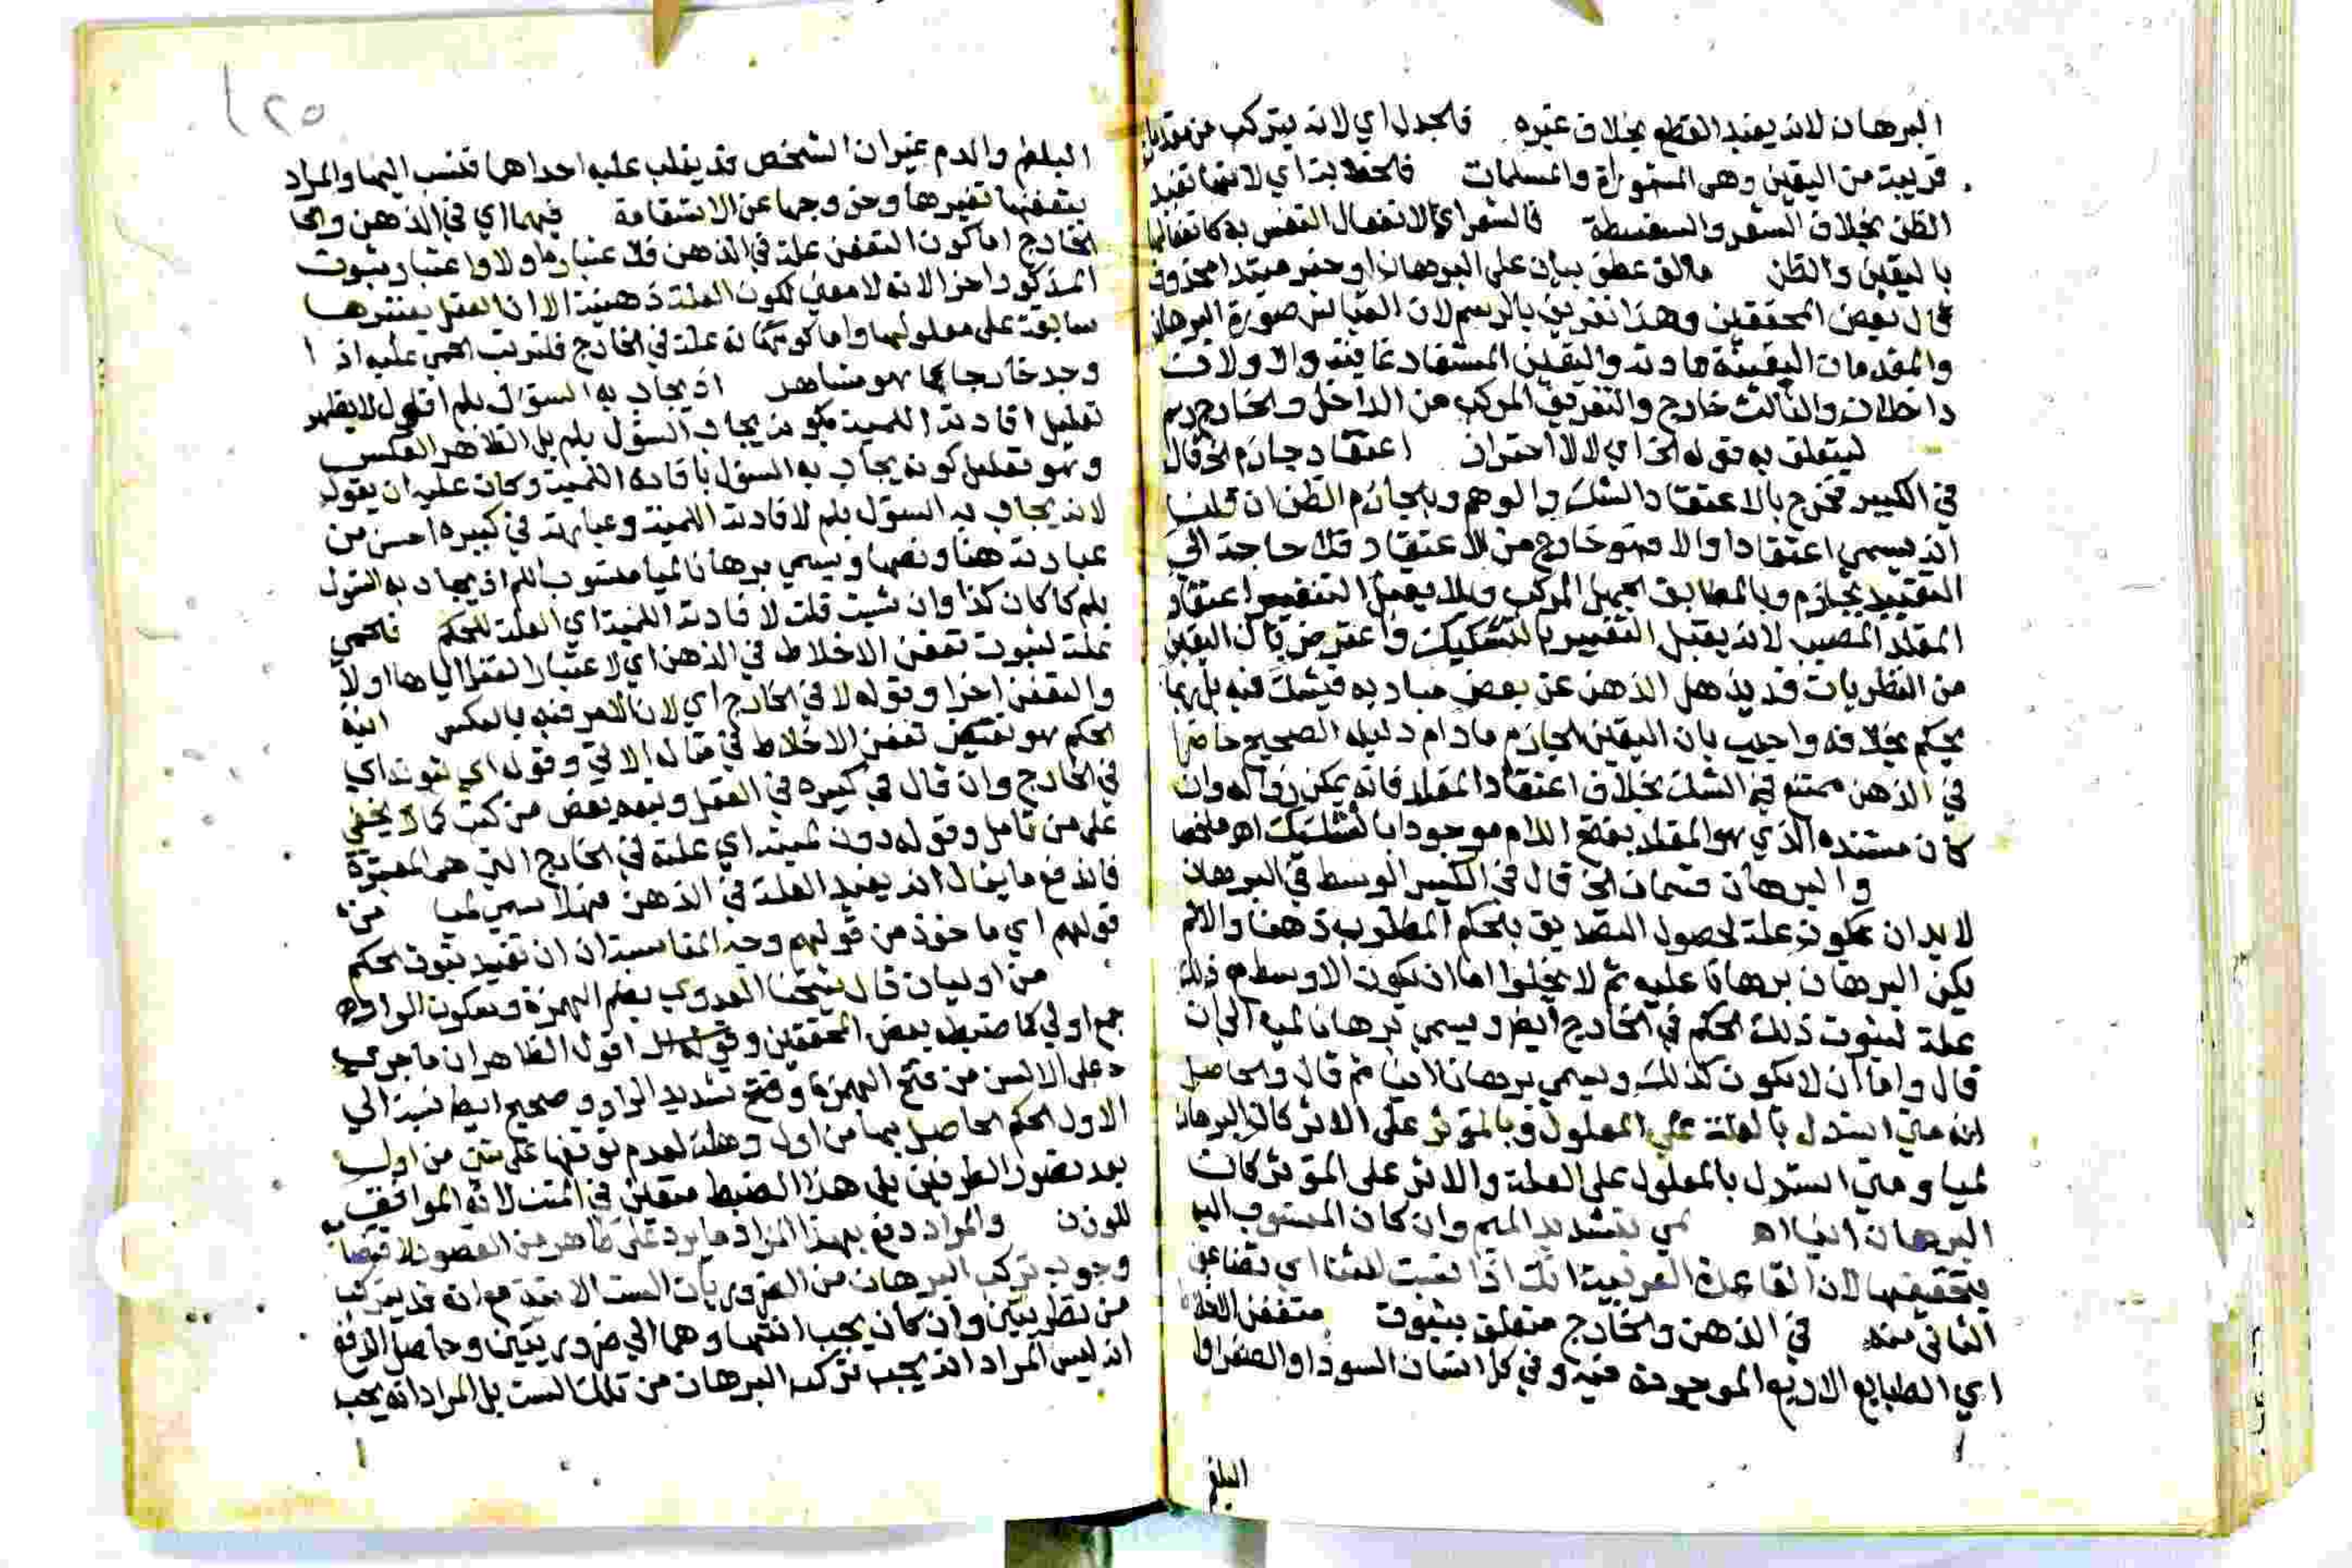 البرهان لانه يفيد القطع بخلاف غيره فالجدل اي لانه يتركب من مقدمات
قريبة من اليقين وهي المشهورات والمسلمات فالخطابة اي لانها تفيد
الظن بخلاف الشعر والسفسطة فالشعر اي لانفعال النفس به كانفعالها
باليقين والظن مالف عطف بيان على البرهان او خبر مبتدا محذوف
قال بعض المحققين وهذا تعريف بالرسم لان القياس صورة البرهان
والمقدمات اليقينية مادته واليقين المستفاد غايته والاولان
داخلان والثالث خارج والتعريف المركب من الداخل والخارج رسم
ليتعلق به قوله الخ اي لا للاحتراز اعتقاد جازم الخ قال
في الكبير فخرج بالاعتقاد الشك والوهم وبالجازم الظن ان قلنا
انه يسمى اعتقادا والا فهو خارج من الاعتقاد فلا حاجة الى
التقييد بجازم وبالمطابق الجهل المركب وبلا يقبل التغيير اعتقاد
المقلد المصيب لانه يقبل التغيير بالتشكيك واعترض بان اليقين
من النظريات قد يذهل الذهن عن بعض مباديه فيشك فيه بل ربما
يحكم بخلافه واجيب بان اليقين الجازم مادام دليله الصحيح حاضرا
في الذهن ممتنع فيه الشك بخلاف اعتقاد المقلد فانه يمكن زواله وان
كان مستنده الذي هو المقلد بفتح اللام موجودا بالتشكيك اه ملخصا
والبرهان قسمان الخ قال في الكبير الوسط في البرهان
لا بد ان يكون علة لحصول التصديق بالحكم المطلوب ذهنا والا لم
يكن البرهان برهانا عليه ثم لا يخلوا اما ان يكون الاوسط مع ذلك
علة لثبوت ذلك الحكم في الخارج ايض ويسمى برهان لميه الى ان
قال واما ان لا يكون كذلك ويسمى برهانا انيا ثم قال والحاصل
انه متى استدل بالعلة على المعلول وبالمؤثر على الاثر كان البرهان
لميا ومتى استدل بالمعلول على العلة والاثر على المؤثر كان
البرهان انيا اه لمي بتشديد الميم وان كان المنسوب اليه
بتخفيفها لان القاعدة العربية انك اذا نسبت لثنائي تضاعف
الثاني منه في الذهن والخارج متعلق بثبوت متعفن الاخلاط
اي الطبايع الاربع الموجودة فيه وفي كل انسان السودا والصفرا و
البلغم
١٢٥
البلغم والدم غير ان الشخص قد يغلب عليه احداها فتنسب اليها والمراد
بتعفنها تغيرها وخروجها عن الاستقامة فيهما اي في الذهن والخا
الخارج اما كون التعفن علة في الذهن فلاعتباره اولا واعتبار ثبوت
المذكور اخرا لانه لا معنى لكون العلة ذهنية الا ان العقل يعتبرها
سابقة على معلولها واما كونه علة في الخارج فلترتب الحمى عليه اذا
وجد خارجا كما هو مشاهد اذ يجاب به السؤال بلم اقول لا يظهر
تعليل افادته اللمية بكونه يجاب السؤل بلم بل الظاهر العكس
وهو تعليل كونه يجاب به السؤل بافاده اللمية وكان عليه ان يقول
لانه يجاب به السؤل بلم لافادته اللمية وعبارته في كبيره احسن من
عبارته هنا ونصها ويسمى برهانا لميا منسوب للم اذ يجاب به السؤل
بلم كا كان كذا وان شيت قلت لافادته اللمية اي العلة للحكم فالحمى
علة لثبوت تعفن الاخلاط في الذهن اي لاعتبار العقل اياها اولا
والتعفن اخرا وقوله لا في الخارج اي لان الامر فيه بالعكس انية
الحكم هو تعفن الاخلاط في مثال الاتي وقوله اي ثبوته اي
في الخارج وان قال في كبيره في العقل وتبعه بعض من كتب كما لا يخفى
على من تامل وقوله دون لميته اي علته في الخارج التي هي المعتبرة
فاندفع ما يقال انه يفيد العلة في الذهن فهلا سمي لميا من
قولهم اي ما خوذ من قولهم وجه المناسبة ان ان تفيد ثبوت الحكم
من اوليان قال شيخنا العدوي بضم الهمزة وسكون الواو اه
جمع اولي كما ضبطه بعض المحققين اقول الظاهر ان ما جرى
على الالسن من فتح الهمزة وفتح تشديد الواو صحيح ايضا نسبة الى
الاول الحكم الحاصل بها من اول وهلة لعدم توقفها على شئ من اول
بعد تصور الطرفين بل هذا الضبط متعين في المتن لانه الموافق
للوزن والمراد دفع بهذا المراد ما يرد على ظاهر من القصور لاقتضائه
وجوب تركب البرهان من الضروريات الست الاتية مع انه قد يتركب
من نظريتين وان كان يجب انتهاوهما الى ضروريتين وحاصل الدفع
انه ليس المراد انه يجب تركب البرهان من تلك الست بل المراد انه يجب